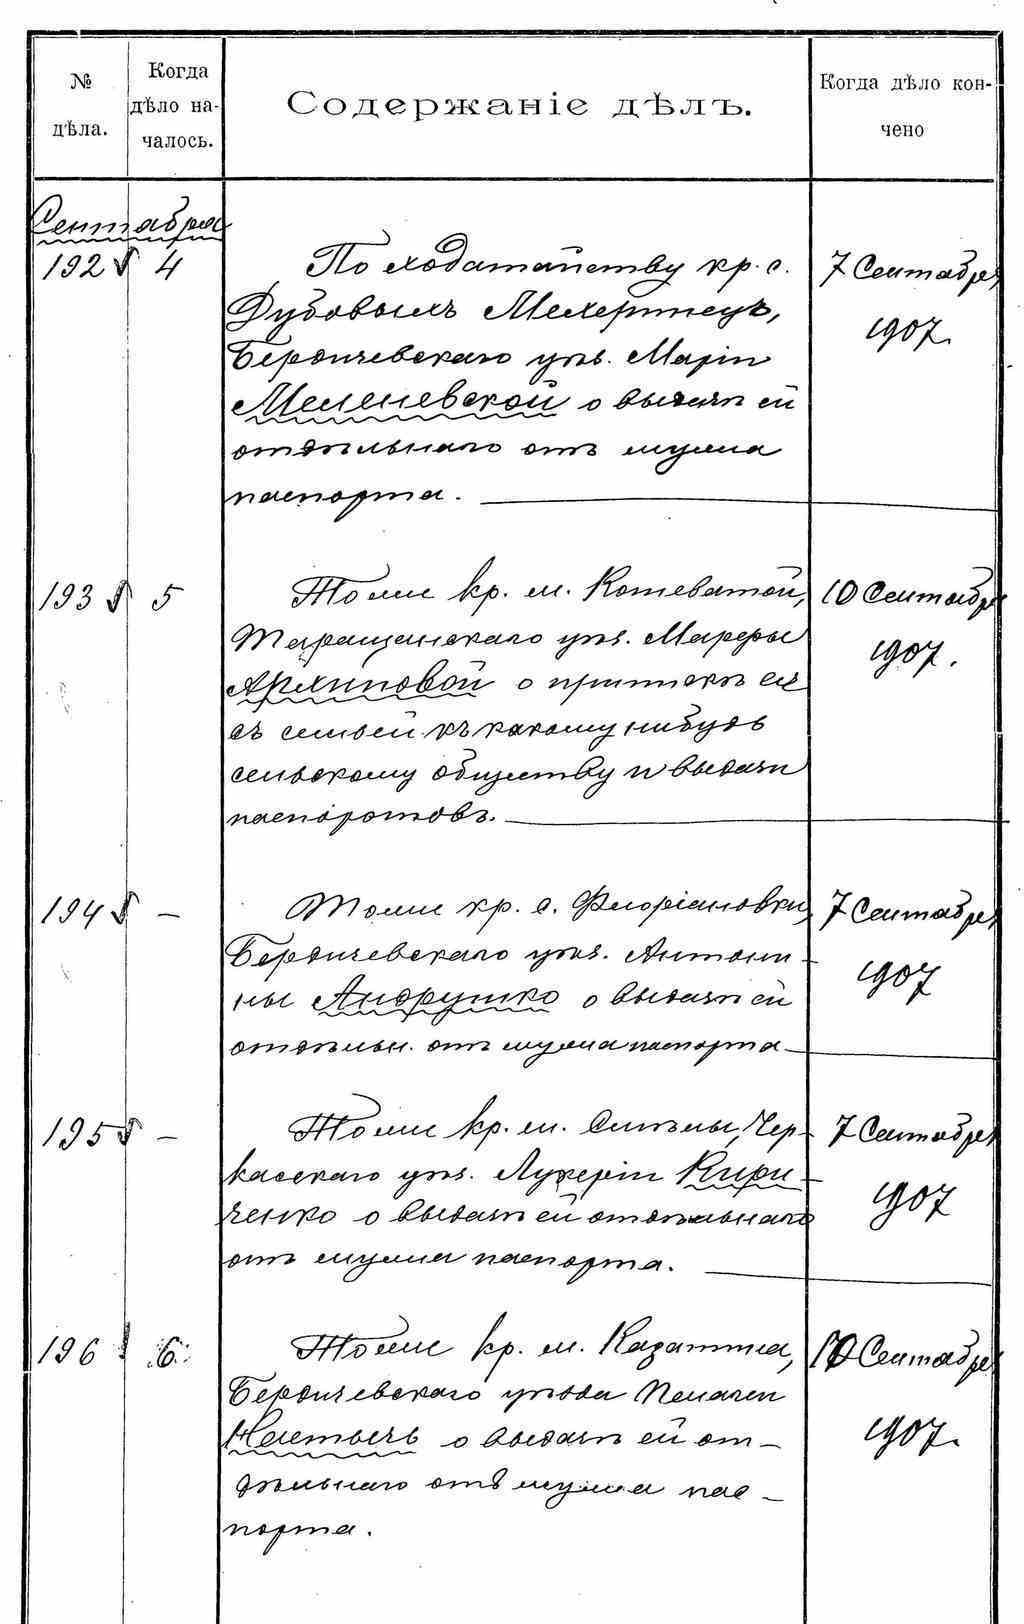 № дѣла.
Когда дѣло на-
чалось.
Содержаніе дѣлъ.
Когда дѣло кон-
чено
Сентября
192 4
По ходатайству кр. с.
Дубовыхъ Махеринецъ,
Бердичевскаго уѣз. Маріи
Меленевской о выдачѣ ей
отдѣльнаго отъ мужа
паспорта.
7 Сентября
1907.
193 5
Тоже кр. м. Кошеватой,
Таращанскаго уѣз. Марфы
Архиповой о припискѣ ея
съ семьей къ какому нибудь
сельскому обществу и выдачи
паспортовъ.
10 Сентября
1907.
194 —
Тоже кр. с. Флоріановки,
Бердичевскаго уѣз. Антони-
ны Андрушко о выдачѣ ей
отдѣльн. отъ мужа паспорта
7 Сентября
1907
195 —
Тоже кр. м. Смѣлы, Чер-
касскаго уѣз. Лукеріи Кири-
ченко о выдачѣ ей отдѣльнаго
отъ мужа паспорта.
7 Сентября
1907
196 6
Тоже кр. м. Казатина,
Бердичевскаго уѣзда Пелагеи
о выдачѣ ей от-
дѣльнаго отъ мужа пас-
порта.
10 Сентября
1907.